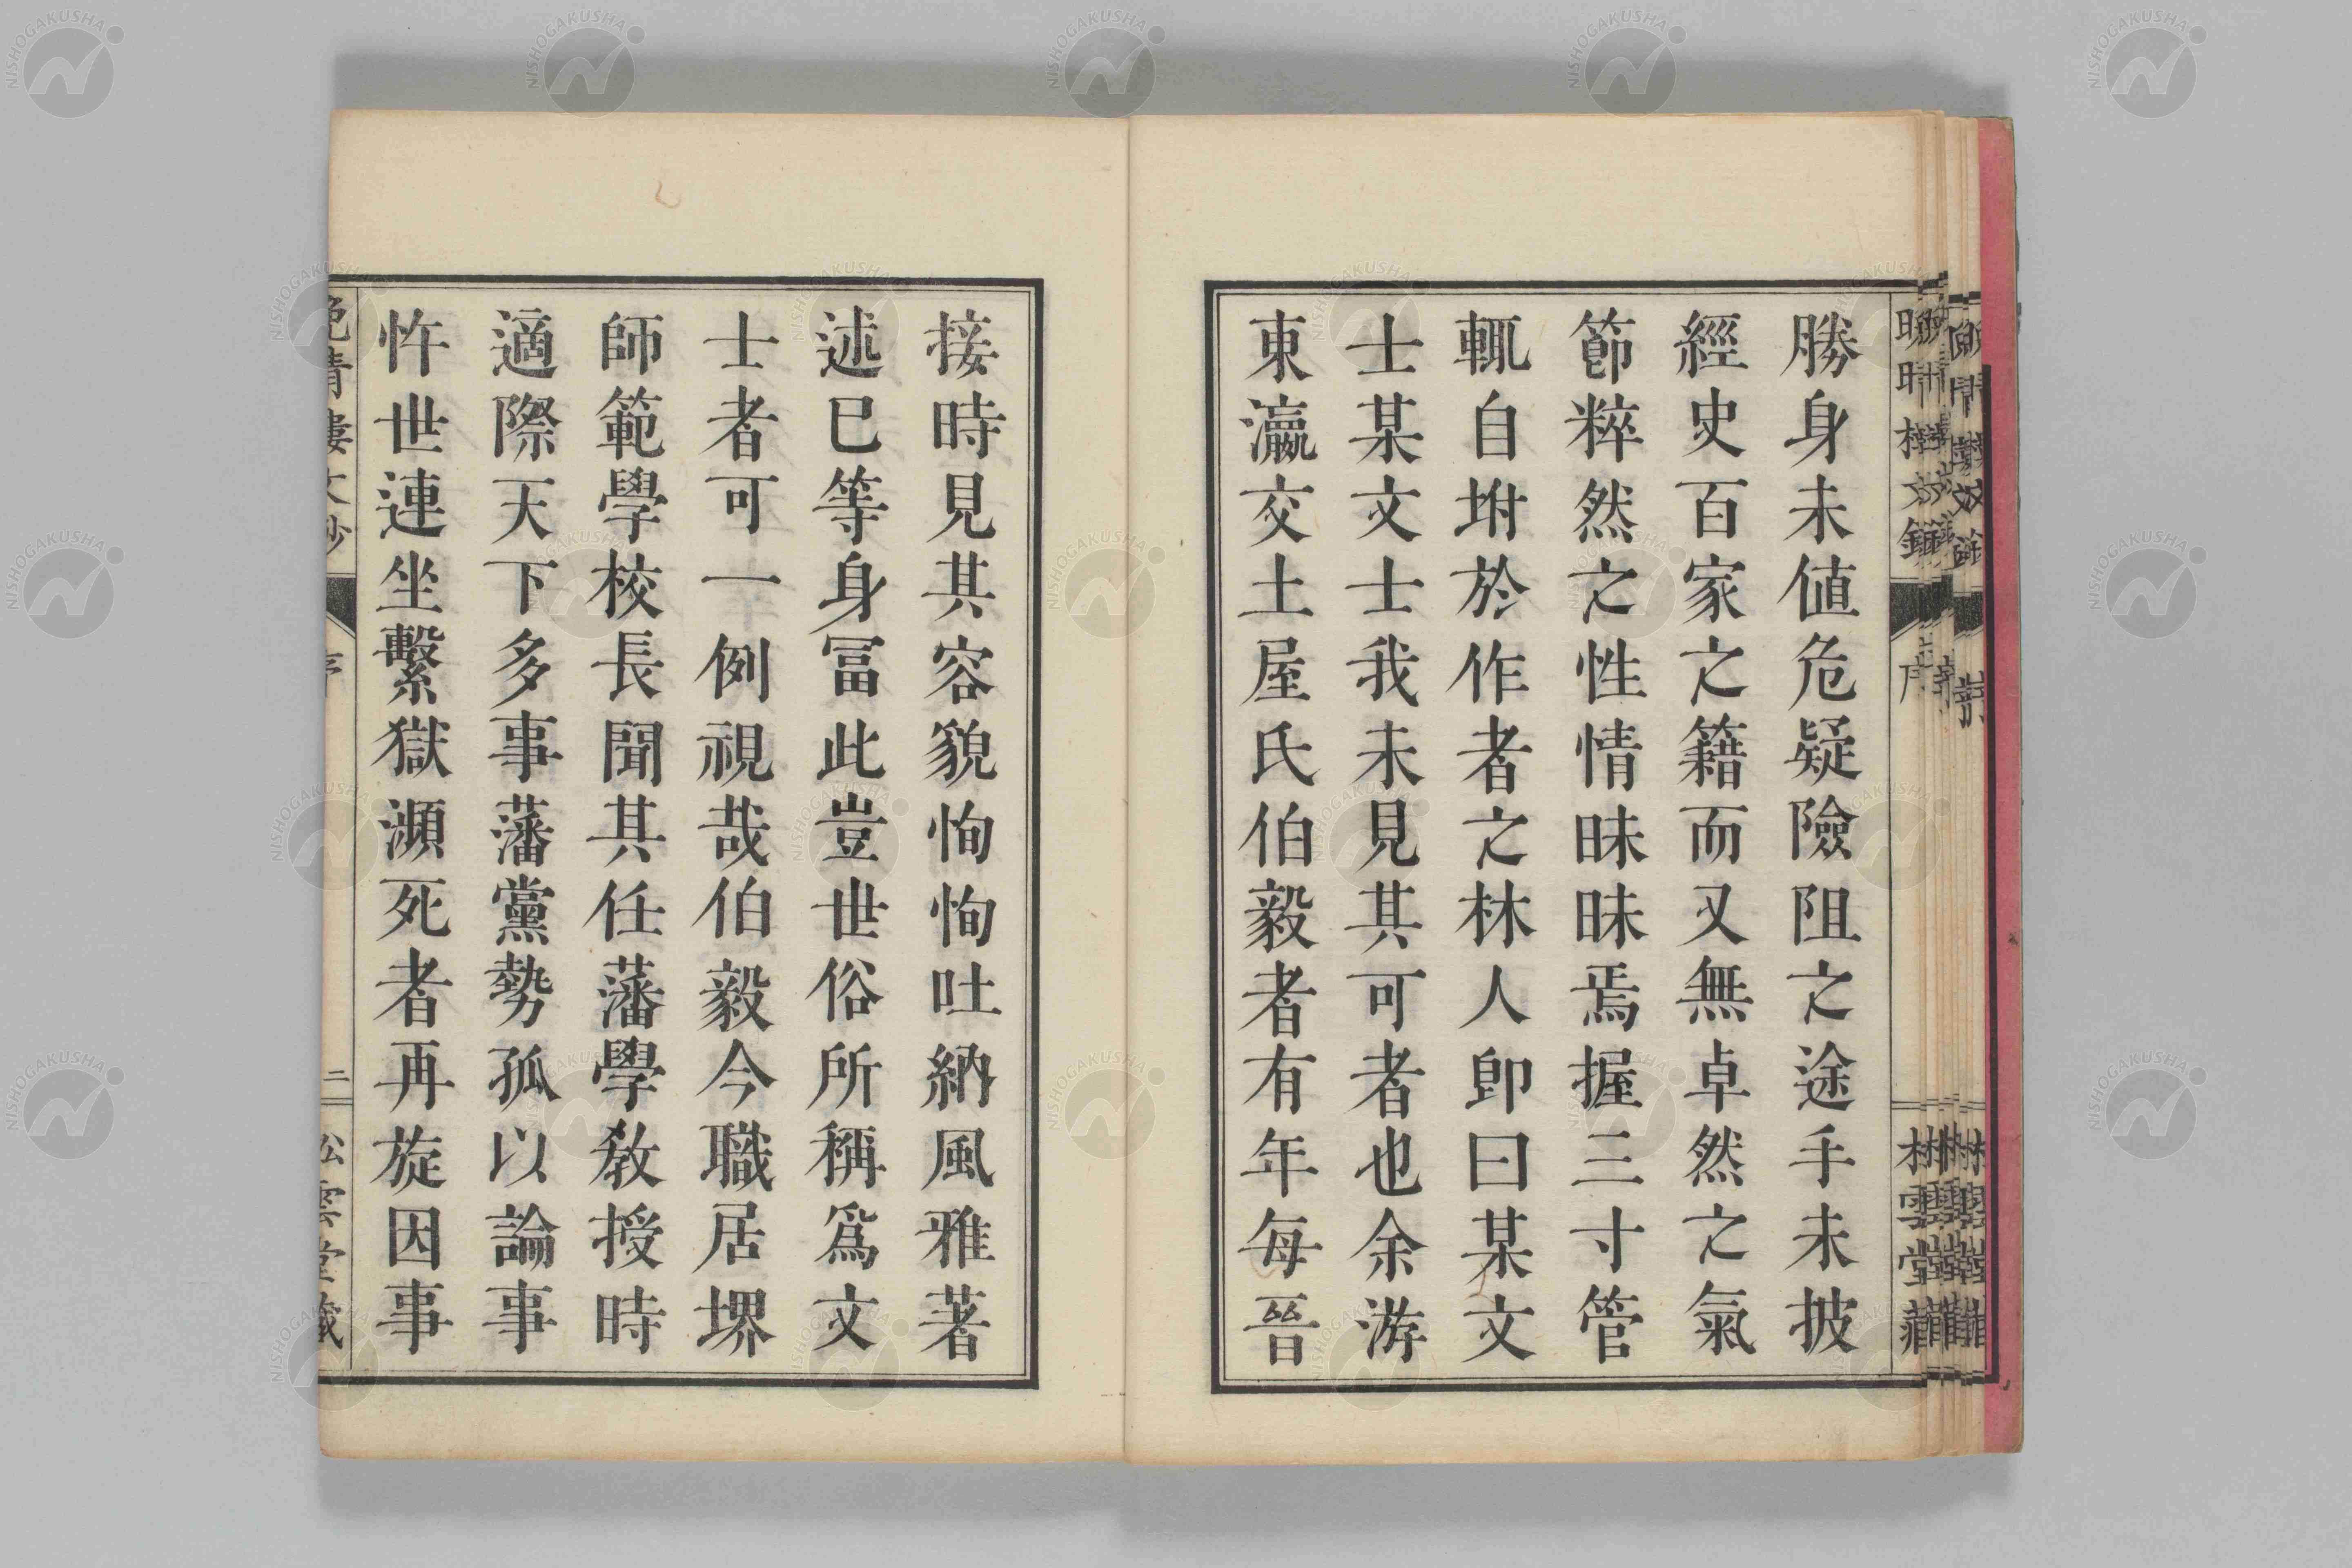 勝身未値危疑險阻之途手未披
經史百家之籍而又無卓然之氣
節粹然之性情昧昧焉握三寸管
輒自坿於作者之林人卽曰某文
士某文士我未見其可者也余游
東瀛交土屋氏伯毅者有年每晉
接時見其容貌恂恂吐納風雅著
述已等身冨此豈世俗所稱爲文
士者可一例視哉伯毅今職居堺
師範學校長聞其任藩學敎授時
適際天下多事藩黨勢孤以論事
忤世連坐繫獄瀕死者再旋因事
晚晴樓文鈔
序
二
松雲堂藏
NISHOGAKUSHA